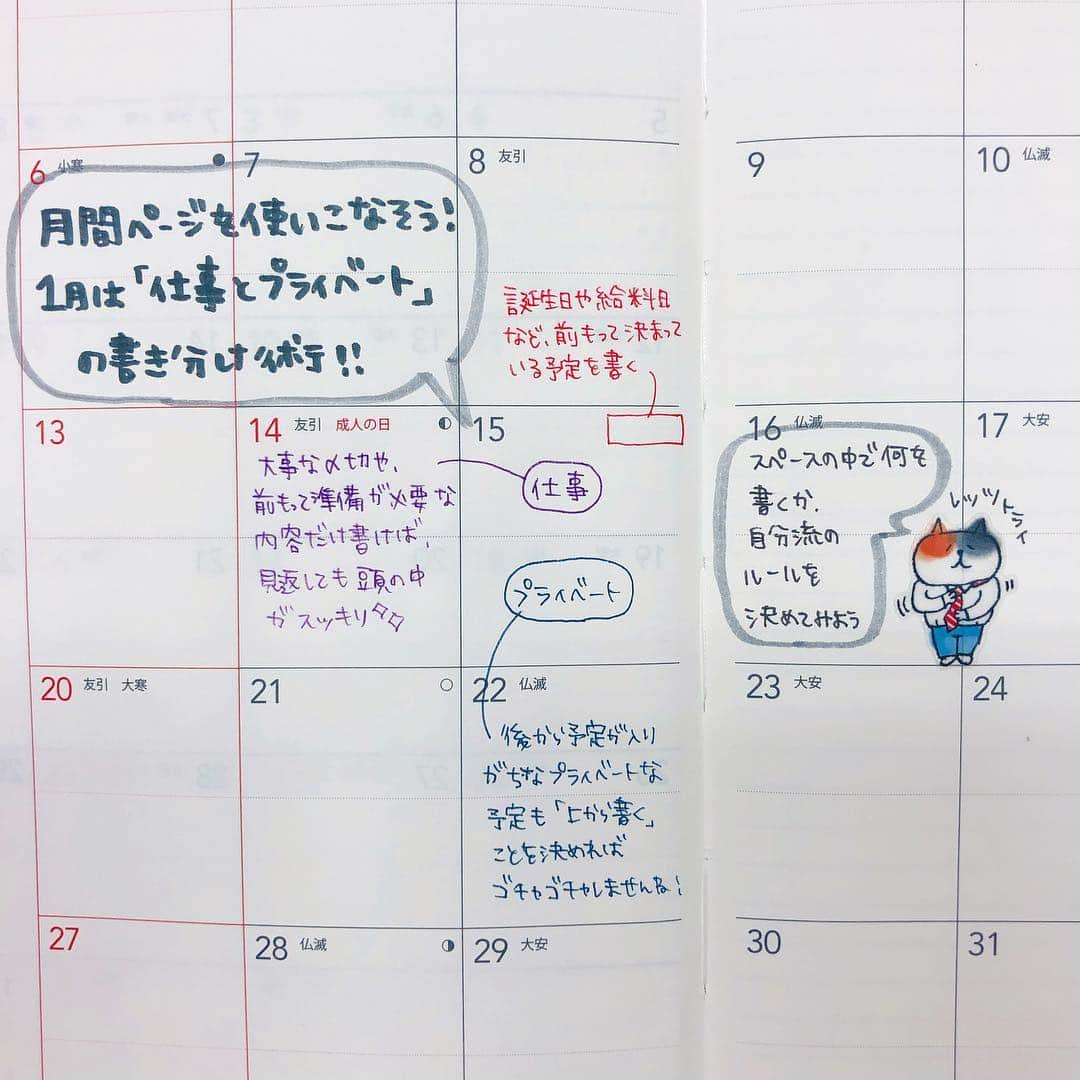 6 小寒
7
8 友引
9
10 仏滅
月間ページを使いこなそう!
1月は「仕事とプライベート」
の書き分けポイント!!
誕生日や給料日
など、前もって決まって
いる予定を書く
13
14 友引 成人の日
15
16 仏滅
17 大安
大事な〆切や、
前もって準備が必要な
内容だけ書けば、
見返しても頭の中
がスッキリ
仕事
プライベート
スペースの中で何を
書くか、
自分流の
ルールを
決めてみよう
レッツトライ
20 友引 大寒
21
22 仏滅
23 大安
24
後から予定が入り
がちなプライベートな
予定も「上から書く」
ことを決めれば
ゴチャゴチャしませんね!
27
28 仏滅
29 大安
30
31